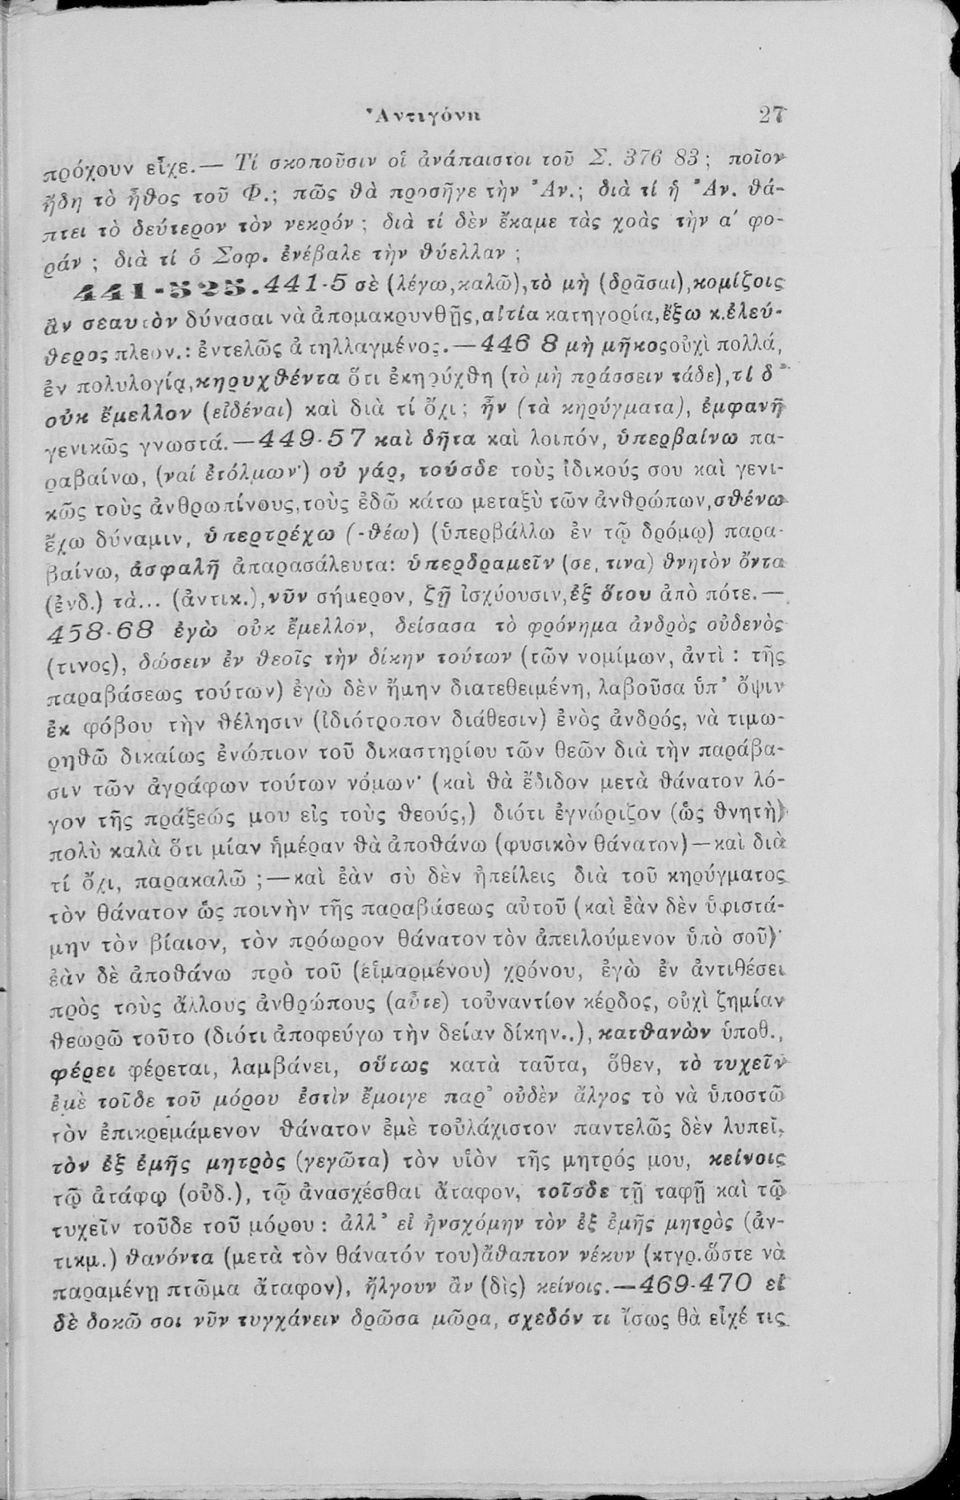 Ἀντιγόνη 27
πρόχουν εἶχε.— Τί σκοποῦσιν οἱ ἀνάπαιστοι τοῦ Σ. 376 83; ποῖον
ἤδη τὸ ἦθος τοῦ Φ.; πῶς θὰ προσῆγε τὴν Ἀν.; διὰ τί ἡ Ἀν. θά-
πτει τὸ δεύτερον τὸν νεκρόν; διὰ τί δὲν ἔκαμε τὰς χοὰς τὴν α' φο-
ράν; διὰ τί ὁ Σοφ. ἐνέβαλε τὴν θύελλαν;
441-525.441-5 σὲ (λέγω,καλῶ),τὸ μὴ (δρᾶσαι),κομίζοις
ἂν σεαυτὸν δύνασαι νὰ ἀπομακρυνθῇς,αἰτία κατηγορία,ἔξω κ.ἐλεύ-
θερος πλεον.: ἐντελῶς ἀπηλλαγμένος.—446 8 μὴ μῆκος οὐχὶ πολλά,
ἐν πολυλογίᾳ,κηρυχθέντα ὅτι ἐκηρύχθη (τὸ μὴ πράσσειν τάδε),τί δ'
οὐκ ἔμελλον (εἰδέναι) καὶ διὰ τί ὄχι; ἦν (τὰ κηρύγματα), ἐμφανῆ
γενικῶς γνωστά.—449-57 καὶ δῆτα καὶ λοιπόν, ὑπερβαίνω πα-
ραβαίνω, (ναί ἐτόλμων·) οὐ γάρ, τούσδε τοὺς ἰδικούς σου καὶ γενι-
κῶς τοὺς ἀνθρωπίνους,τοὺς ἐδῶ κάτω μεταξὺ τῶν ἀνθρώπων,σθένω
ἔχω δύναμιν, ὑπερτρέχω (-θέω) (ὑπερβάλλω ἐν τῷ δρόμῳ) παρα-
βαίνω, ἀσφαλῆ ἀπαρασάλευτα: ὑπερδραμεῖν (σε, τινα) θνητὸν ὄντα
(ἐνδ.) τὰ... (ἀντικ.),νῦν σήμερον, ζῇ ἰσχύουσιν,ἐξ ὅτου ἀπὸ πότε.—
458-68 ἐγὼ οὐκ ἔμελλον, δείσασα τὸ φρόνημα ἀνδρὸς οὐδενὸς
(τινος), δώσειν ἐν θεοῖς τὴν δίκην τούτων (τῶν νομίμων, ἀντὶ : τῆς
παραβάσεως τούτων) ἐγὼ δὲν ἤμην διατεθειμένη, λαβοῦσα ὑπ' ὄψιν
ἐκ φόβου τὴν θέλησιν (ἰδιότροπον διάθεσιν) ἑνὸς ἀνδρός, νὰ τιμω-
ρηθῶ δικαίως ἐνώπιον τοῦ δικαστηρίου τῶν θεῶν διὰ τὴν παράβα-
σιν τῶν ἀγράφων τούτων νόμων· (καὶ θὰ ἔδιδον μετὰ θάνατον λό-
γον τῆς πράξεώς μου εἰς τοὺς θεούς,) διότι ἐγνώριζον (ὡς θνητὴ)
πολὺ καλὰ ὅτι μίαν ἡμέραν θὰ ἀποθάνω (φυσικὸν θάνατον)—καὶ διὰ
τί ὄχι, παρακαλῶ ;—καὶ ἐὰν σὺ δὲν ἠπείλεις διὰ τοῦ κηρύγματος
τὸν θάνατον ὡς ποινὴν τῆς παραβάσεως αὐτοῦ (καὶ ἐὰν δὲν ὑφιστά-
μην τὸν βίαιον, τὸν πρόωρον θάνατον τὸν ἀπειλούμενον ὑπὸ σοῦ)·
ἐὰν δὲ ἀποθάνω πρὸ τοῦ (εἱμαρμένου) χρόνου, ἐγὼ ἐν ἀντιθέσει
πρὸς τοὺς ἄλλους ἀνθρώπους (αὖτε) τοὐναντίον κέρδος, οὐχὶ ζημίαν
θεωρῶ τοῦτο (διότι ἀποφεύγω τὴν δείαν δίκην..), κατθανὼν ὑποθ.,
φέρει φέρεται, λαμβάνει, οὕτως κατὰ ταῦτα, ὅθεν, τὸ τυχεῖν
ἐμὲ τοῖδε τοῦ μόρου ἐστὶν ἔμοιγε παρ' οὐδὲν ἄλγος τὸ νὰ ὑποστῶ
τὸν ἐπικρεμάμενον θάνατον ἐμὲ τοὐλάχιστον παντελῶς δὲν λυπεῖ,
τὸν ἐξ ἐμῆς μητρὸς (γεγῶτα) τὸν υἱὸν τῆς μητρός μου, κείνοις
τῷ ἀτάφῳ (οὐδ.), τῷ ἀνασχέσθαι ἄταφον, τοῖσδε τῇ ταφῇ καὶ τῷ
τυχεῖν τοῦδε τοῦ μόρου : ἀλλ' εἰ ἠνσχόμην τὸν ἐξ ἐμῆς μητρὸς (ἀν-
τικμ.) θανόντα (μετὰ τὸν θάνατόν του)ἄθαπτον νέκυν (κτγρ.ὥστε νὰ
παραμένῃ πτῶμα ἄταφον), ἤλγουν ἂν (δὶς) κείνοις.—469-470 εἰ
δὲ δοκῶ σοι νῦν τυγχάνειν δρῶσα μῶρα, σχεδόν τι ἴσως θὰ εἶχέ τις